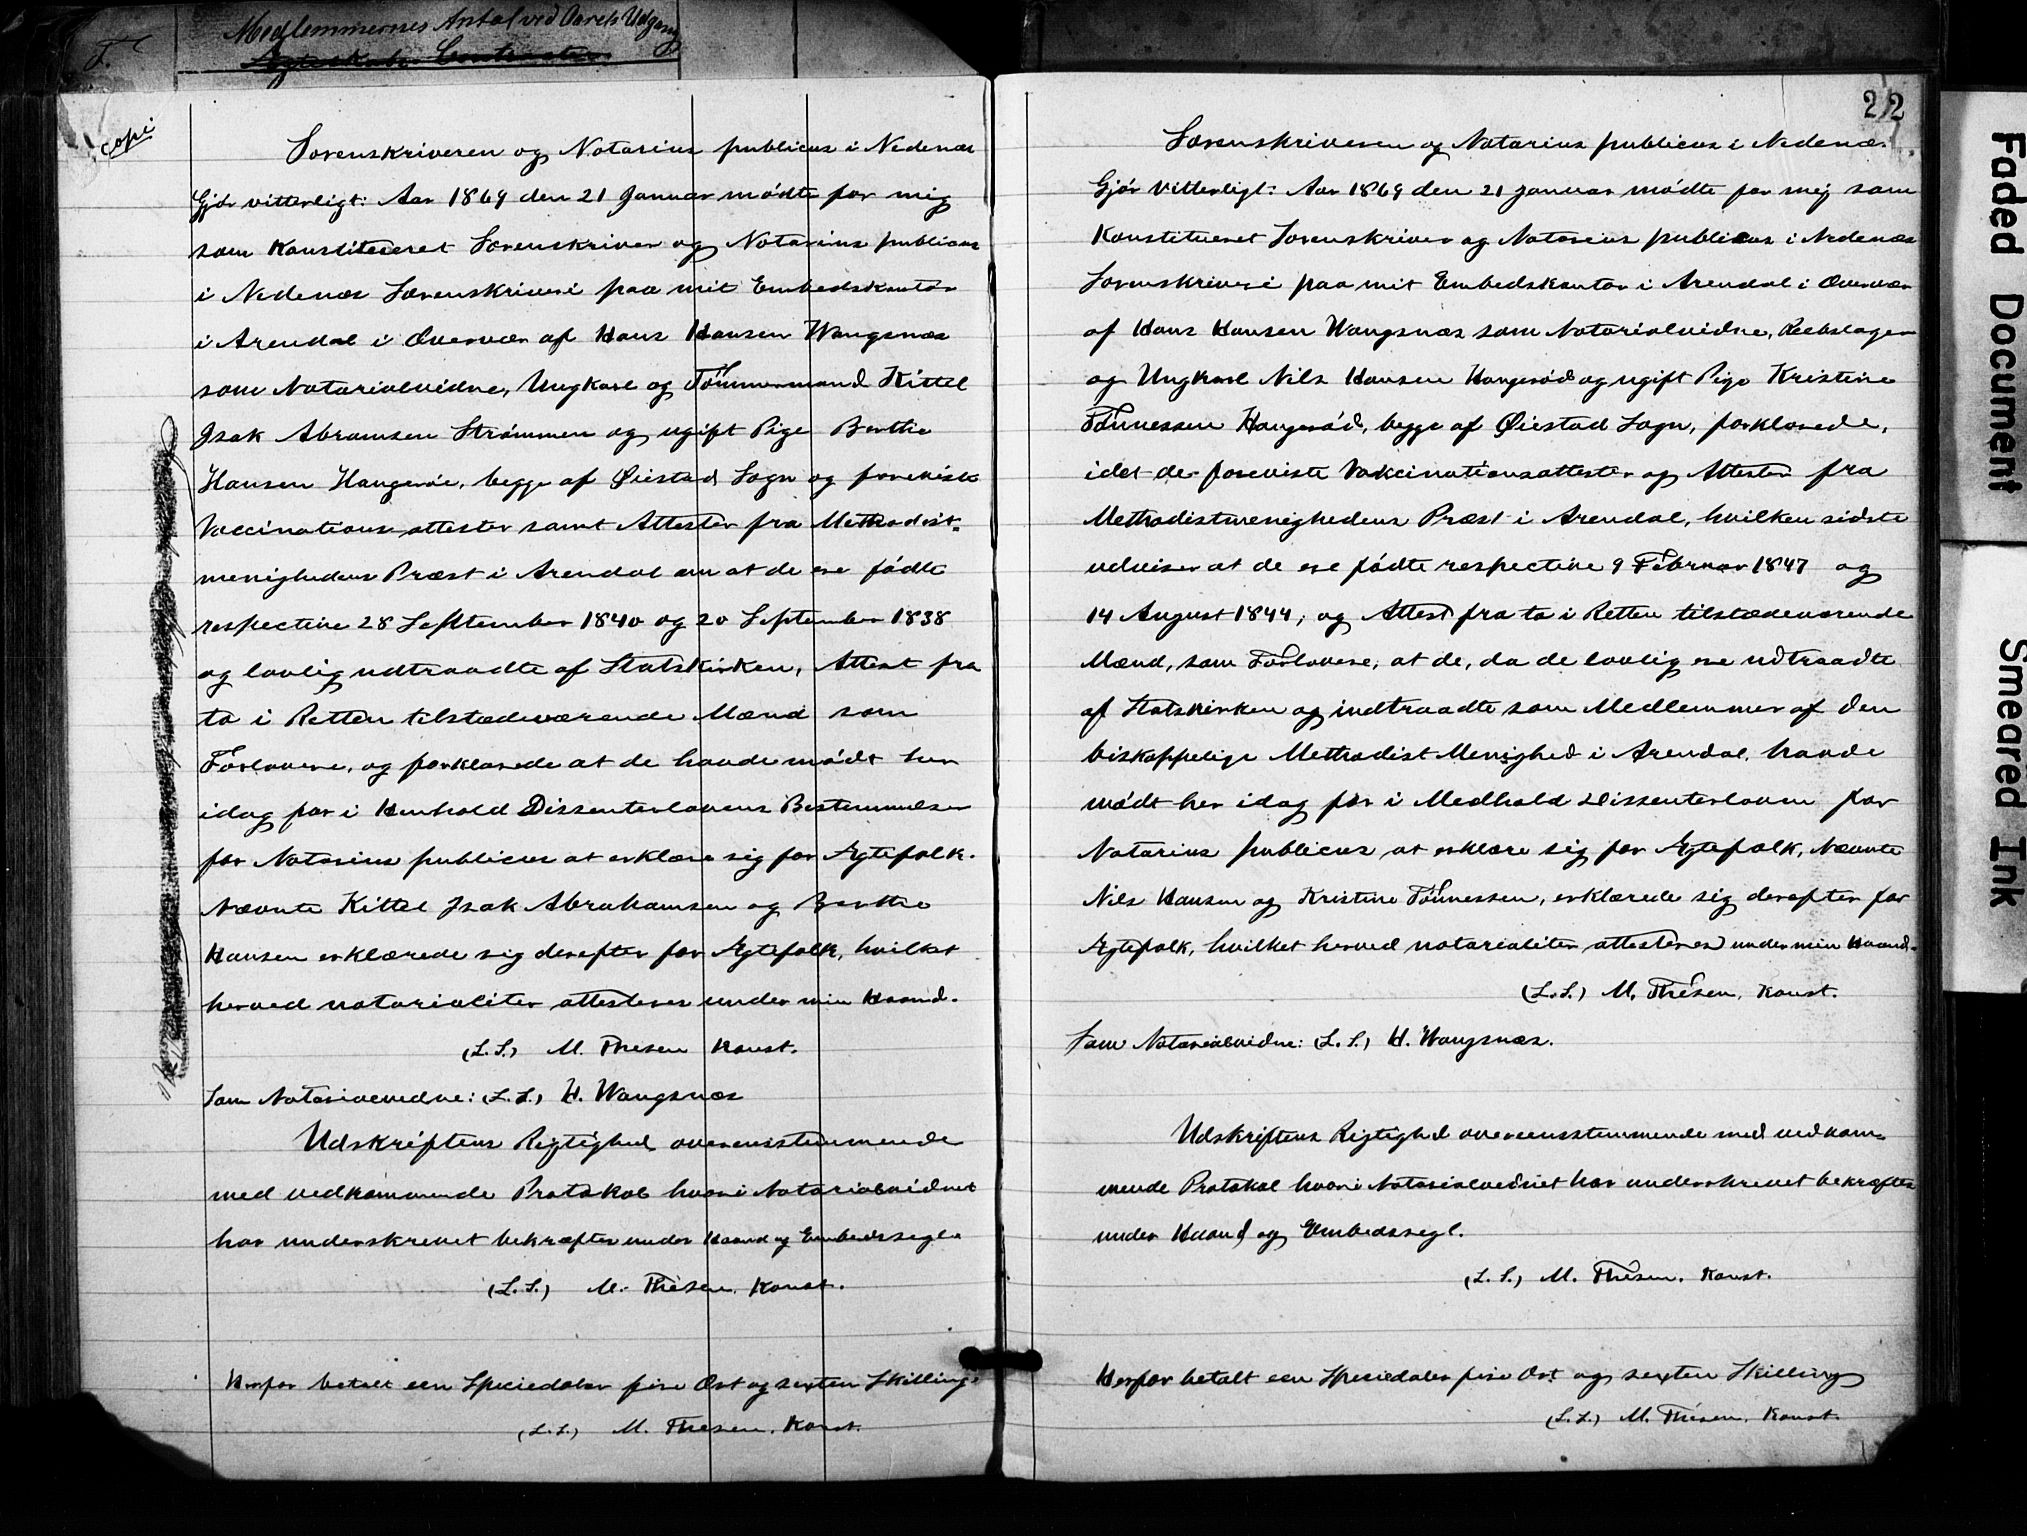 Medlemmernes Antal ved Aarets Udgang
copi
Sorenskriveren og Notarius publicus i Nedenæs
Gjør vitterligt: Aar 1869 den 21 Januar mødte for mig
som Konstitueret Sorenskriver og Notarius publicus
i Nedenæs Sorenskriveri paa mit Embedskontor
i Arendal i Overvær af Hans Hansen Wangsnæs
som Notarialvidne, Ungkarl og Tømmermand Kittel
Isak Abramsen Strømmen og ugift Pige Berthe
Hansen Haugerøe, begge af Øiestad Sogn og foreviste
Vaccinations attester samt Attester fra Methodist-
menighedens Præst i Arendal om at de ere fødte
respective 28 September 1840 og 20 September 1838
og lovlig udtraadte af Statskirken, Attest fra
to i Retten tilstedeværende Mænd som
Forlovere, og forklarede at de havde mødt her
idag for i Henhold Dissenterlovens Bestemmelser
for Notarius publicus at erklære sig for Ægtefolk.
Nævnte Kittel Isak Abrahamsen og Berthe
Hansen erklærede sig derefter for Ægtefolk, hvilket
herved notarialiter attesteres under min Haand.
(L.S.) M. Thesen Konst.
Som Notarialvidne: (L.S.) H. Wangsnæs
Udskriftens Rigtighed overensstemmende
med vedkommende Protokol hvori Notarialvidnet
har underskrevet bekræftes under Haand og Embedssegl.
(L.S.) M. Thesen. Konst.
Herfor betalt een Speciedaler fire Ort og sexten Skilling.
(L.S.) M. Thesen. Konst.
22
Sorenskriveren og Notarius publicus i Nedenæs
Gjør Vitterligt: Aar 1869 den 21 Januar mødte for mig som
Konstitueret Sorenskriver og Notarius publicus i Nedenæs
Sorenskriveri paa mit Embedskontor i Arendal i Overvær
af Hans Hansen Wangsnæs som Notarialvidne, Reebslager
og Ungkarl Nils Hansen Haugerød og ugift Pige Kristine
Tønnessen Haugerød, begge af Øiestad Sogn, forklarede,
idet de foreviste Vakcinationsattester og Attester fra
Methodistmenighedens Præst i Arendal, hvilken sidste
udviser at de ere fødte respective 9 Februar 1847 og
14 August 1844, og Attest fra to i Retten tilstædeværende
Mænd, som Forlovere, at de, da de lovlig ere udtraadte
af Statskirken og indtraadte som Medlemmer af den
biskoppelige Methodist Menighed i Arendal, havde
mødt her idag for i Medhold Dissenterloven for
Notarius publicus at erklære sig for Ægtefolk, Nævnte
Nils Hansen og Kristine Tønnessen, erklærede sig derefter for
Ægtefolk, hvilket herved notarialiter attesteres under min Haand.
(L.S.) M. Thesen, Konst.
Som Notarialvidne: (L.S.) H. Wangsnæs.
Udskriftens Rigtighed overeensstemmende med vedkom-
mende Protokol hvori Notarialvidnet har underskrevet bekræftes
under Haand og Embedssegl.
(L.S.) M. Thesen. Konst.
Herfor betalt een Speciedaler fire Ort og sexten Skilling
(L.S.) M. Thesen. Konst.
Faded Document
Smeared Ink